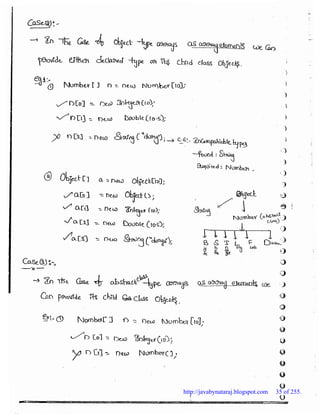 Case(2):-
→ In the Case of Object-type arrays as array elements we Can
provide either declared type or its child class Objects.
Eg:- ① Number[ ] n = new Number[10];
✓n[0] = new Integer(10);
✓n[1] = new Double(10.5);
n[2] = new String("durga"); → C.E:- Incompatible types
found: String
required: Number.
② Object[ ] a = new Object[10];
✓a[0] = new Object();
✓a[1] = new Integer(10);
✓a[2] = new Double(10.5);
✓a[3] = new String("durga");
Object
String
Number (abstract class)
B S I L F D
Case(3):-
→ In the Case of abstract class type arrays as array elements we
Can provide its child class Objects.
Eg:- ① Number[ ] n = new Number[10];
✓n[0] = new Integer(10);
n[1] = new Number();
http://javabynataraj.blogspot.com 35 of 255.